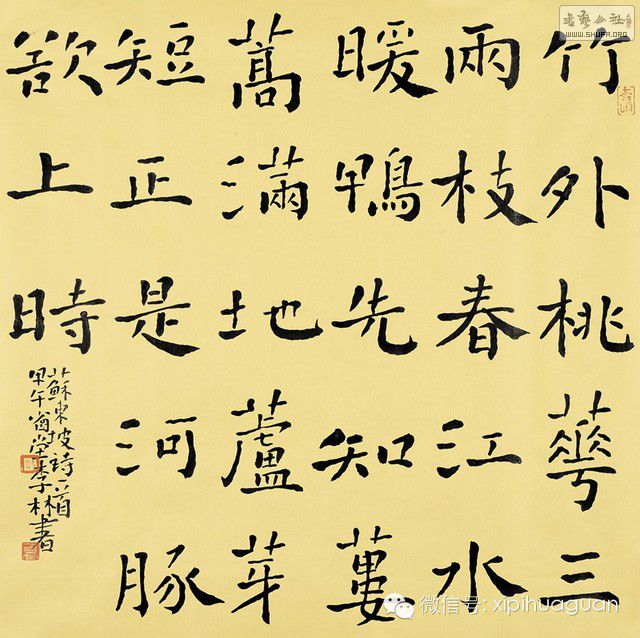 竹外桃華三
兩枝春江水
暖鴨先知蔞
蒿滿地蘆芽
短正是河豚
欲上時
蘇東坡詩一首
甲午李林書
書藝公社
WWW.SHUFA.ORG
微信号: xipihuaguan